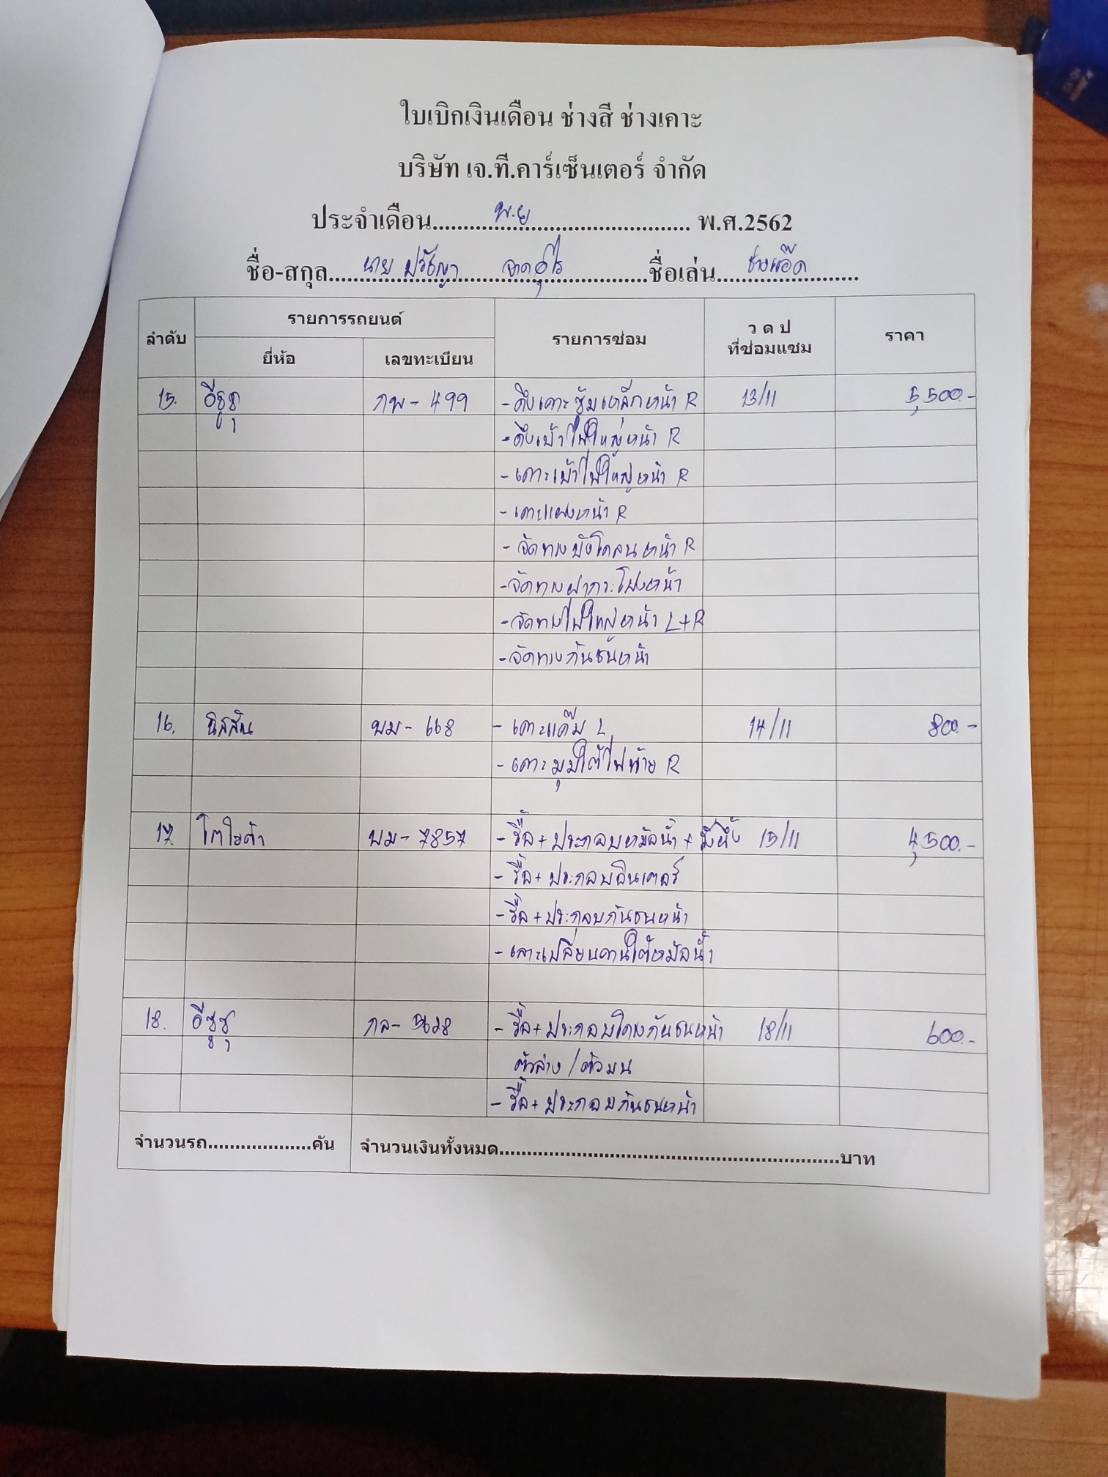 ใบเบิกเงินเดือน ช่างสี ช่างเคาะ
บริษัท เจ.ที.คาร์เซ็นเตอร์ จำกัด
ประจำเดือน.....พ.ย..... พ.ศ.2562
ชื่อ-สกุล.....นาย ปรัชญา.....ชื่อเล่น.....ช่างแอ๊ด.....
ลำดับ รายการรถยนต์ รายการซ่อม ว ด ป ที่ซ่อมแซม ราคา
ยี่ห้อ เลขทะเบียน
15. อีซูซุ กพ-499 -ดึงเคาะซุ้มเหล็กหน้า R 13/11 5,500.-
-ดึงเบ้าไฟใหญ่หน้า R
-เคาะเบ้าไฟใหญ่หน้า R
-เคาะแผงหน้า R
-จัดทางบังโคลนหน้า R
-จัดทางฝากระโปรงหน้า
-จัดทางไฟใหญ่หน้า L+R
-จัดทางกันชนหน้า
16. นิสสัน บม-668 -เคาะแค๊ป L 14/11 800.-
-เคาะมุมใต้ไฟท้าย R
17. โตโยต้า บม-7857 -รื้อ+ประกอบหม้อน้ำ+ 15/11 4,500.-
-รื้อ+ประกอบอินเตอร์
-รื้อ+ประกอบกันชนหน้า
-เลาะเปลี่ยนคานใต้หม้อน้ำ
18. อีซูซุ -รื้อ+ประกอบโครงกันชนหน้า 18/11 600.-
ตัวล่าง/ตัวบน
-รื้อ+ประกอบกันชนหน้า
จำนวนรถ...................คัน จำนวนเงินทั้งหมด..............................................................บาท